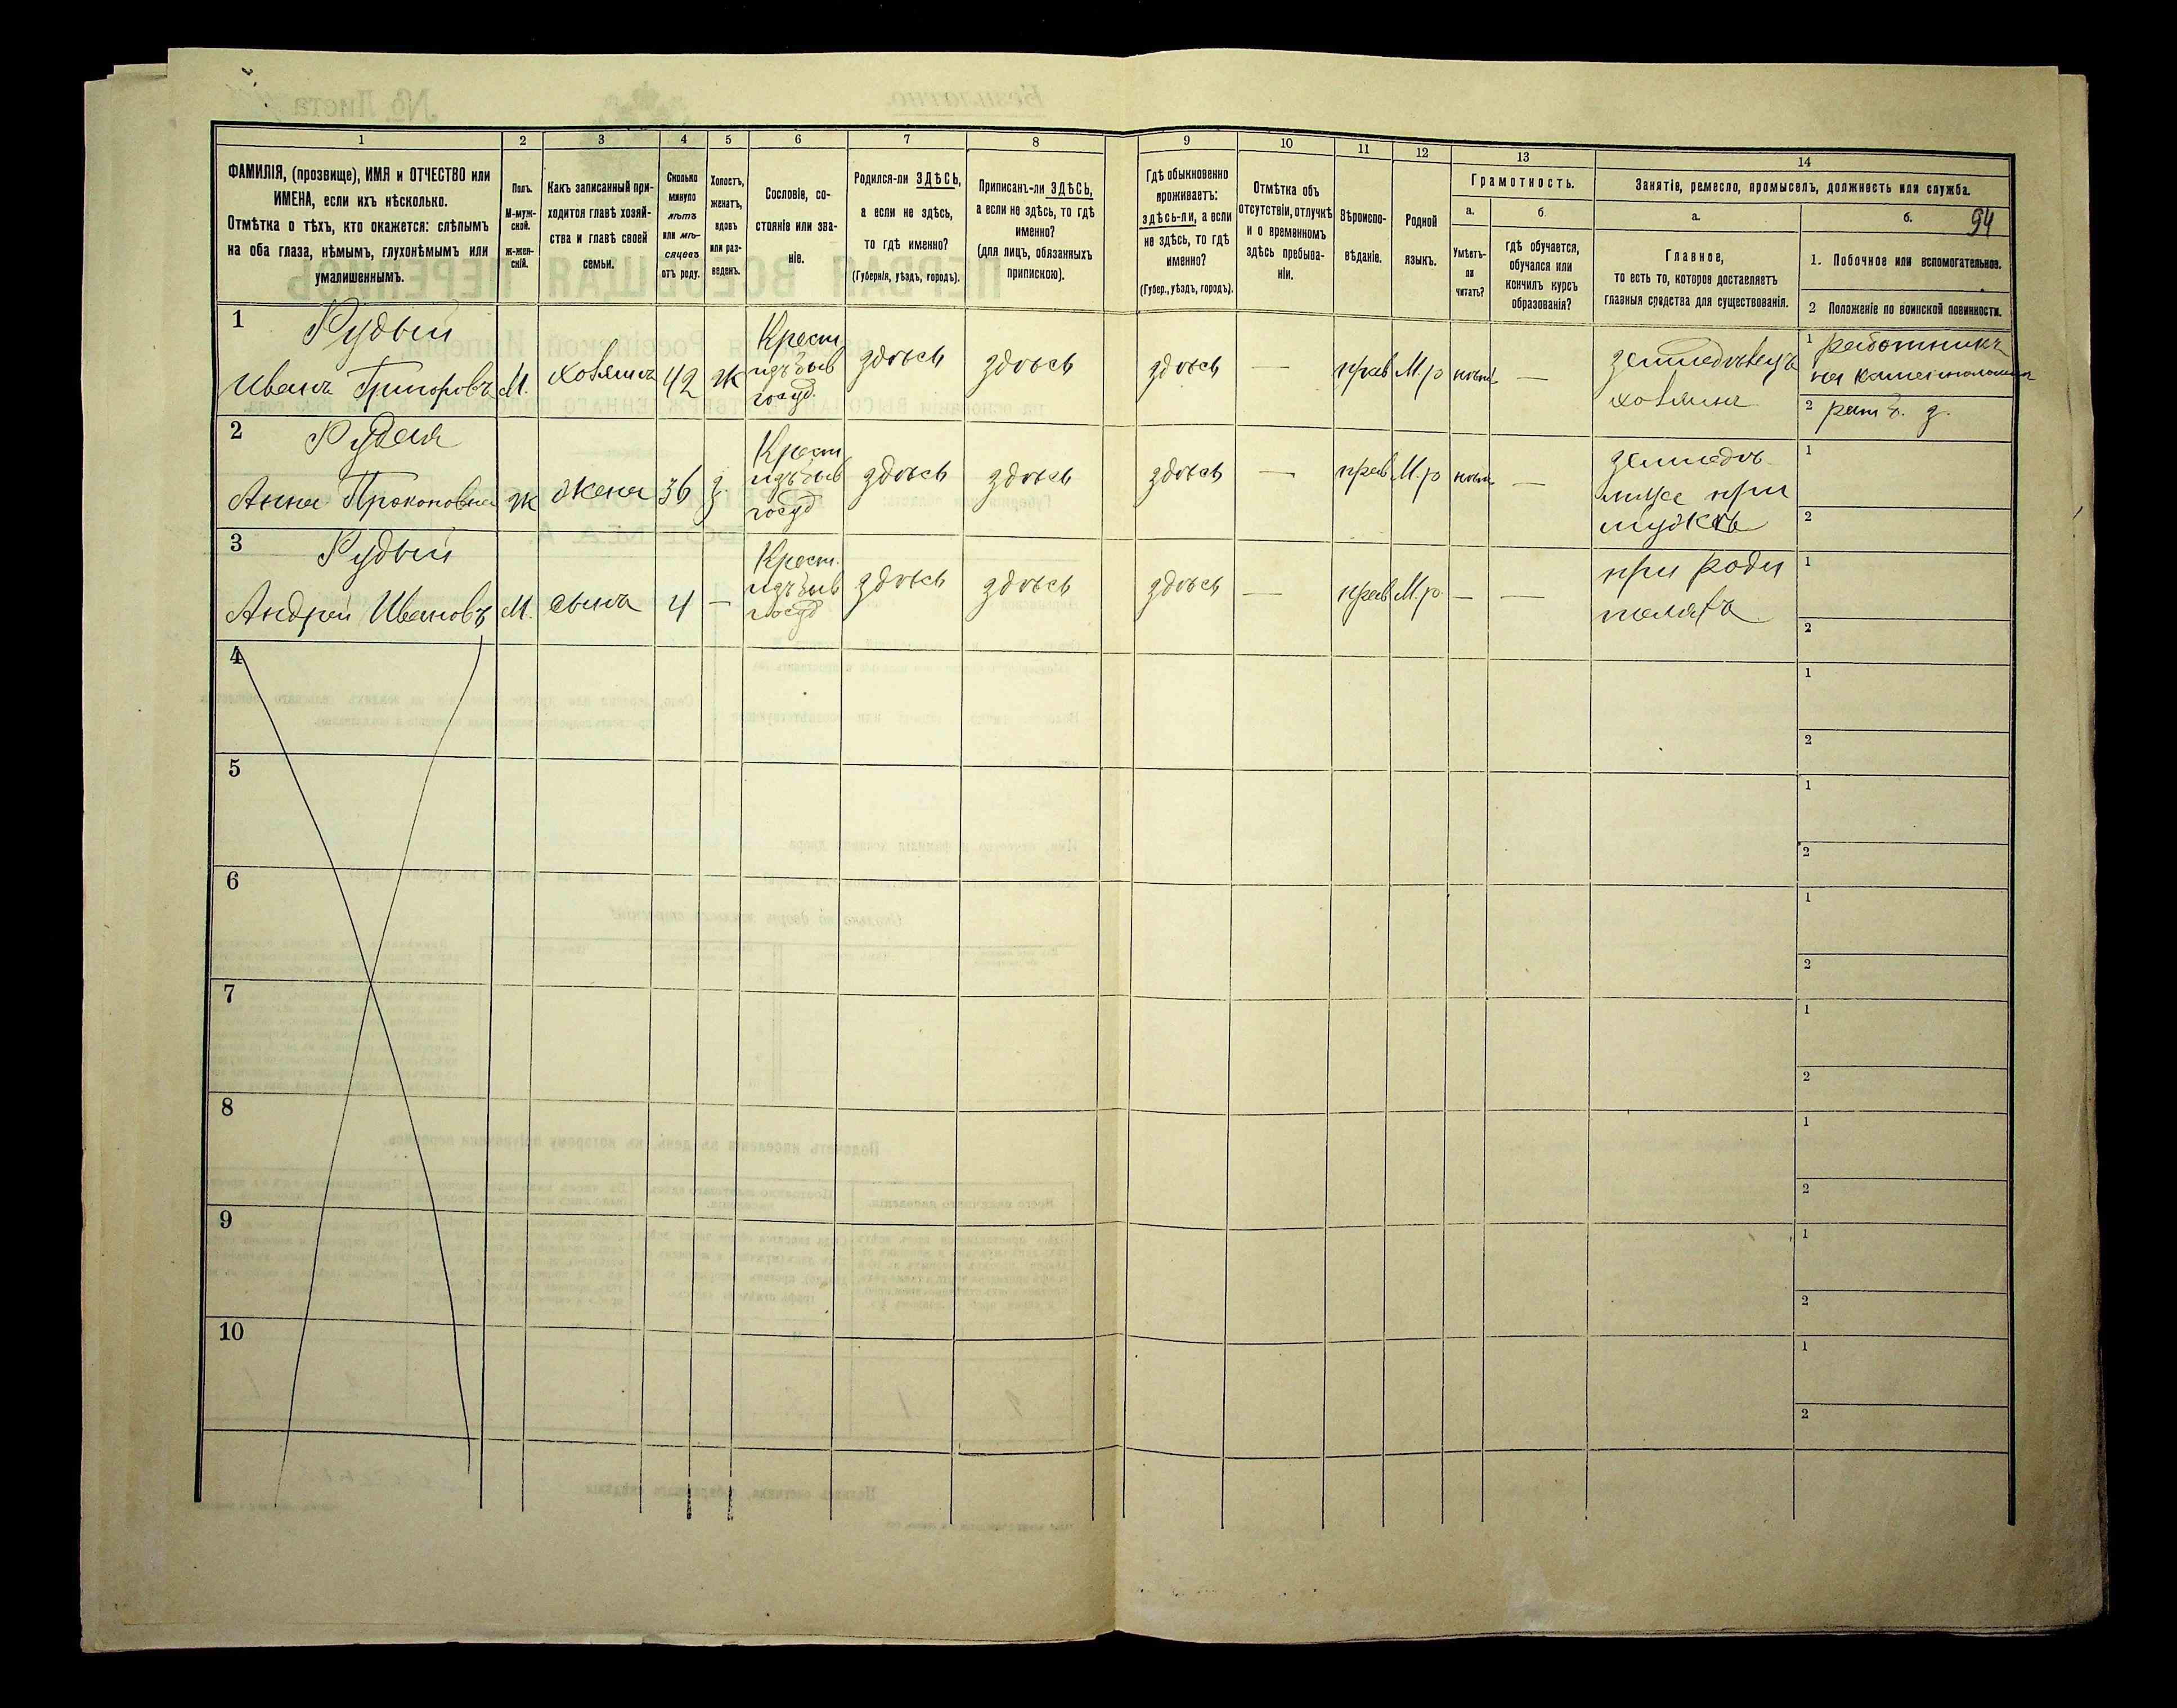 1
2
3
4
5
6
7
8
9
10
11
12
13
14
ФАМИЛІЯ, (прозвище), ИМЯ и ОТЧЕСТВО или
ИМЕНА, если ихъ нѣсколько.
Отмѣтка о тѣхъ, кто окажется: слѣпымъ
на оба глаза, нѣмымъ, глухонѣмымъ или
умалишеннымъ.
Полъ.
М-муж-
ской.
ж-жен-
скій.
Какъ записанный при-
ходится главѣ хозяй-
ства и главѣ своей
семьи.
Сколько
минуло
лѣтъ
или мѣ-
сяцевъ
отъ роду.
Холостъ,
женатъ,
вдовъ
или раз-
веденъ.
Сословіе, со-
стояніе или зва-
ніе.
Родился-ли ЗДѢСЬ,
а если не здѣсь,
то гдѣ именно?
(Губернія, уѣздъ, городъ).
Приписанъ-ли ЗДѢСЬ,
а если не здѣсь, то гдѣ
именно?
(для лицъ, обязанныхъ
припискою).
Гдѣ обыкновенно
проживаетъ:
здѣсь-ли, а если
не здѣсь, то гдѣ
именно?
(Губер., уѣздъ, городъ).
Отмѣтка объ
отсутствіи, отлучкѣ
и о временномъ
здѣсь пребыва-
ніи.
Вѣроиспо-
вѣданіе.
Родной
языкъ.
Грамотность.
а.
б.
Умѣетъ-
ли
читать?
гдѣ обучается,
обучался или
кончилъ курсъ
образованія?
Занятіе, ремесло, промыселъ, должность или служба.
а.
б.
94
Главное,
то есть то, которое доставляетъ
главныя средства для существованія.
1. Побочное или вспомогательное.
2 Положеніе по воинской повинности.
1
Рудый
Иванъ Григоровъ
М.
хозяинъ
42
ж
Крест
изъ быв
госуд.
здѣсь
здѣсь
здѣсь
—
прав
М. р
нѣтъ
—
земледѣлецъ
хозяинъ
1 работникъ
на
2 рат. 2. д.
2
Рудая
Анна Прокоповна
ж
жена
36
з.
Крест
изъ быв
госуд
здѣсь
здѣсь
здѣсь
—
прав
М. р
нѣтъ
—
земледѣ-
лица при
мужѣ
1
2
3
Рудый
Андрей Ивановъ
М.
сынъ
4
—
Крест.
изъ быв
госуд
здѣсь
здѣсь
здѣсь
—
прав
М. р.
—
—
при роди
теляхъ
1
2
4
1
2
5
1
2
6
1
2
7
1
2
8
1
2
9
1
2
10
1
2